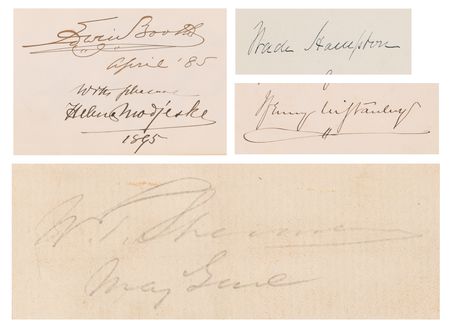 Edwin Booth
April '85
With pleasure
Helena Modjeska
1895
Wade Hampton
Henry M Stanley
W. T. Sherman
Maj Genl